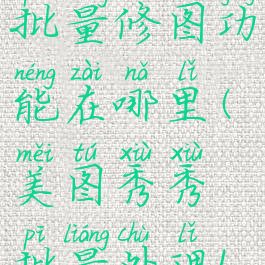 批量修图功
néng zài nǎ lǐ
能在哪里(
měi tú xiù xiù
美图秀秀
pī liàng chù lǐ
批量处理(